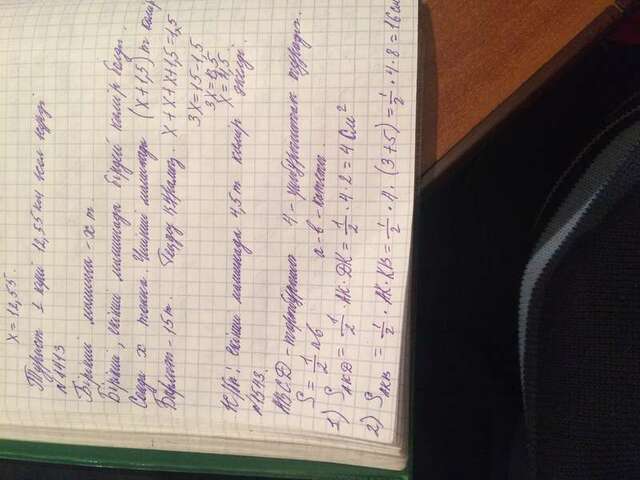 x = 12,55.
Турист 1 күні 12,55 км жол жүрді
№1413
Бірінші машина - x т.
Бірінші, екінші машинада бірдей көмір болды.
Сонда x тонна. Үшінші машинада (x+1,5) т көмір
Барлығы - 15 т. Теңдеу құрамыз. x + x + x + 1,5 = 15
3x = 15 - 1,5
3x = 13,5
x = 4,5
Ж/бы: екінші машинада 4,5 т көмір әкелді.
№1543.
ABCD - төртбұрышы 4 - үшбұрыштан тұрады.
S = 1/2 ab a - b - катеты.
1) S AKD = 1/2 · AK · DK = 1/2 · 4 · 2 = 4 см²
2) S AKB = 1/2 · AK · KB = 1/2 · 4 · (3+5) = 1/2 · 4 · 8 = 16 см